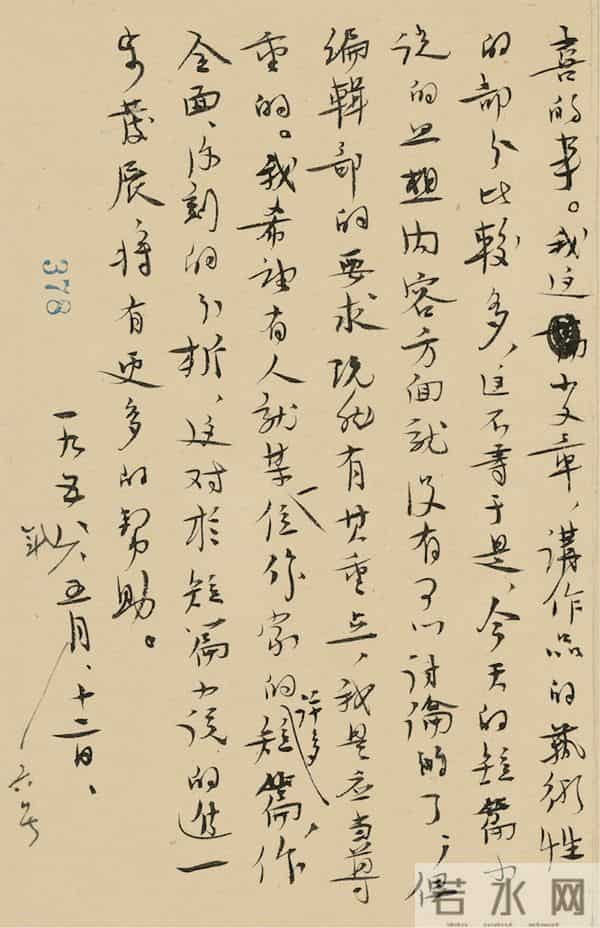 喜的事。我这小文章，講作品的藝術性
的部分比較多，这不等于是，今天的短篇小
说的思想内容方面就没有可以讨論的了，但
编輯部的要求既然有其重点，我是应当尊
重的。我希望有人就某一位作家的許多短篇，作
全面、深刻的分析，这对於短篇小说的進一
步发展，将有更多的帮助。
一九五六年五月、十二日、
六号
378
若水网